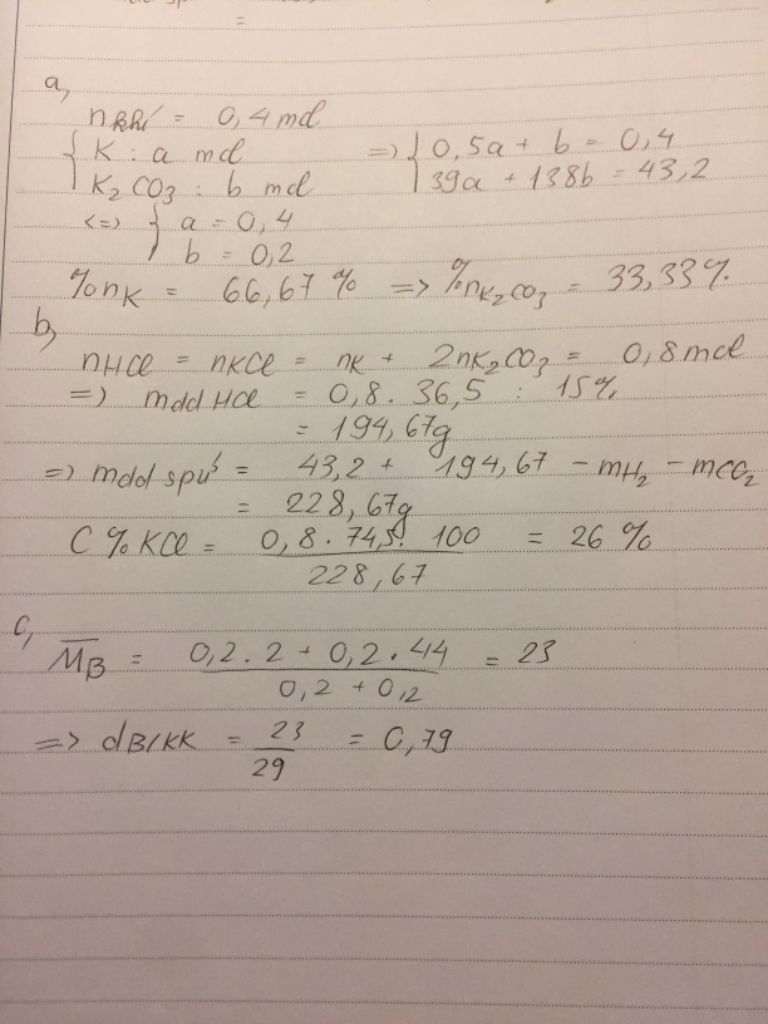 =
a,
nkhí = 0,4 mol
{ K : a mol => { 0,5a + b = 0,4
K2CO3 : b mol 39a + 138b = 43,2
<=> { a = 0,4
b = 0,2
%nK = 66,67 % => %nK2CO3 = 33,33%
b,
nHCl = nKCl = nK + 2nK2CO3 = 0,8 mol
=> mdd HCl = 0,8 . 36,5 : 15%
= 194,67g
=> mdd spứ = 43,2 + 194,67 - mH2 - mCO2
= 228,67g
C%KCl = 0,8 . 74,5 . 100 = 26 %
228,67
c,
MB = 0,2 . 2 + 0,2 . 44 = 23
0,2 + 0,2
=> dB/KK = 23 = 0,79
29